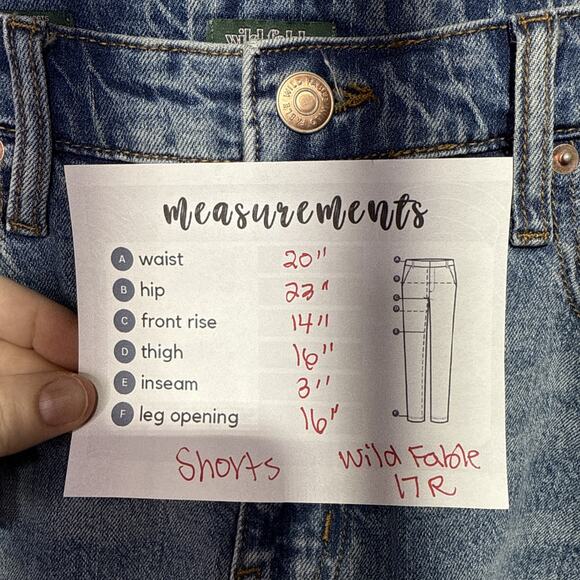 wild fable
FABLE WILD FABLE WILD
measurements
A waist 20"
B hip 23"
C front rise 14"
D thigh 16"
E inseam 3"
F leg opening 16"
Shorts
Wild Fable
17R